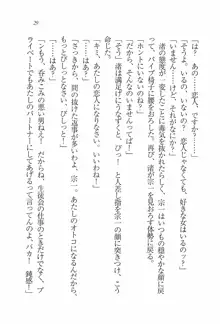 「あのさ……。あんた、恋人、いるの？」
「いませんけど……はい？」
「いませんが……けど？」
「いないのね？　恋人はいなくても、好きな女はいるの？」
渚の態度が変したことに毒気を抜かれたように、宗一はいつもの穏やかな顔に
戻って、パイプ椅子に腰をおろした。すると再び、渚が宗一を見おろす体勢になる。
「いえ、そんなのいませんってば」
渚は満足げにうなずくと、びっ！　と人差し指を宗一の顔に突きつけ、こう
命じた。
「あたしの恋人になりなさい。いいわね！」
「……はあ？」
「さっきから、間の抜けた返事が多いわよ、宗一。あたしのオトコになるんだから、
もっとぴしっとしなさい、ぴしっと！」
「……はあ？」
「んもう、呑みこみの悪い男ねえ！　だからね、生徒会の仕事のときだけでなく、プ
ライベートでもあたしのパートナーにしてあげるって言ってんのよ、バカ！　鈍感！」
29